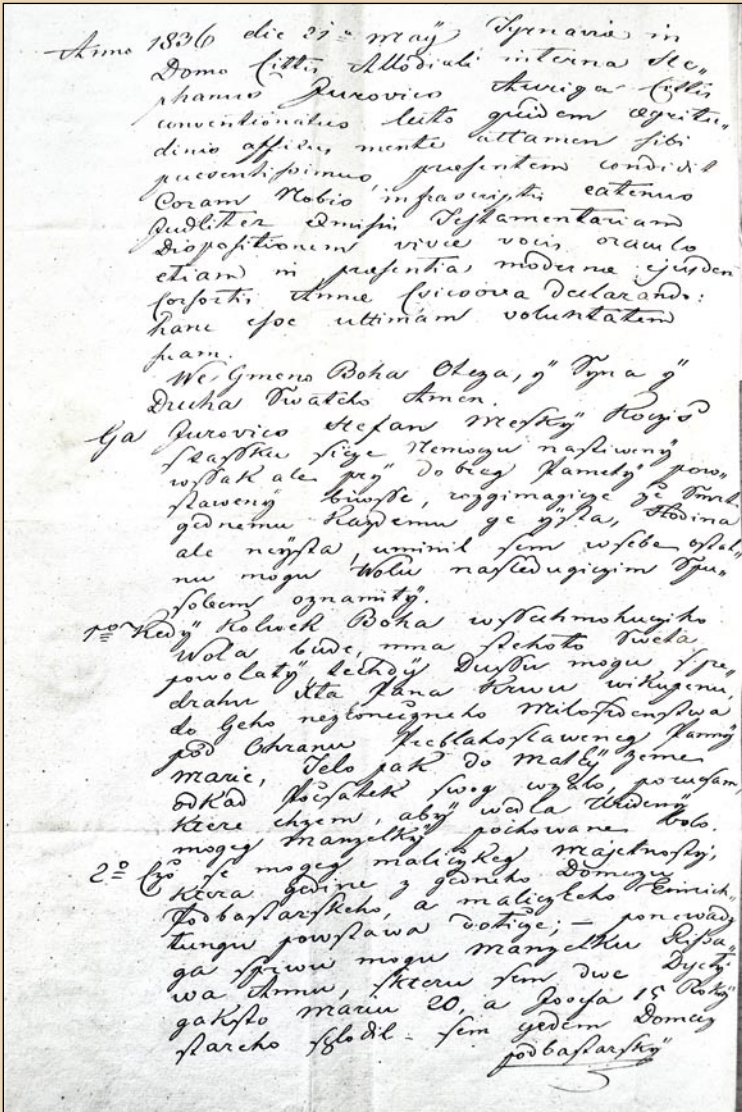 Anno 1836 die 21ª Maÿ Tyrnaviæ in
Domo Cittis Allodiali interna Ste„
phanus Jurovics Auriga Cittis
conventionatus lecto quidem ægritu„
dinis affixus mente attamen sibi
præsentissimus, præsentem condidit
Coram Nobis infrascriptis eatenus
Judliter Exmissis Testamentariam
Dispositionem vivæ vocis oraculo
etiam in præsentia modernæ ejusdem
Consortis Annæ declarando:
hanc esse ultimam voluntatem
suam.
We Gmeno Boha Otcza, ÿ Syna ÿ
Ducha Swateho Amen.
Ga Jurovics Stefan Mesky Kocziss
sicze Nemoczu nastiweny
wssak ale prÿ dobreg Pametÿ pow„
staweny biwsse, rozgimagicze že Smrt
gednemu Kazdemu ge ÿsta, Hodina
ale neysta, uminil sem w sebe ostat„
nu mogu Wolu nasledugiczim Spu„
sobem oznamitÿ.
1mo Kedÿ Kolwek Boha wssechmohucziho
Wola bude, mna stehoto Sweta
powolatÿ tehdÿ Dussu mogu s pre„
drahu Xta Pana Krwu wikupenu,
do Geho nezkonczeneho Milosrdenstwa
pod Ohranu Preblahoslaweneg Pannÿ
Marie, Telo pak do Matkÿ Zeme
odkad Poczatek swog wzalo, porucsam,
ktere chczem, abÿ wedla
mogeg Manzelkÿ pochowane bolo.
2do Czo se mogeg maliczkeg Majetnostÿ,
ktera gedine z gedneho Domczu
Podbastarskeho, a maliczkeho Einrich„
tungu powstawa doticze; – ponewadz
ga sprwu mogu Manzelku
wa Annu, skteru sem dwe Ditkÿ
gaksto Mariu 20, a Josefa 15 Rokÿ
stareho splodil – sem gedem Domczy
podbastarskÿ